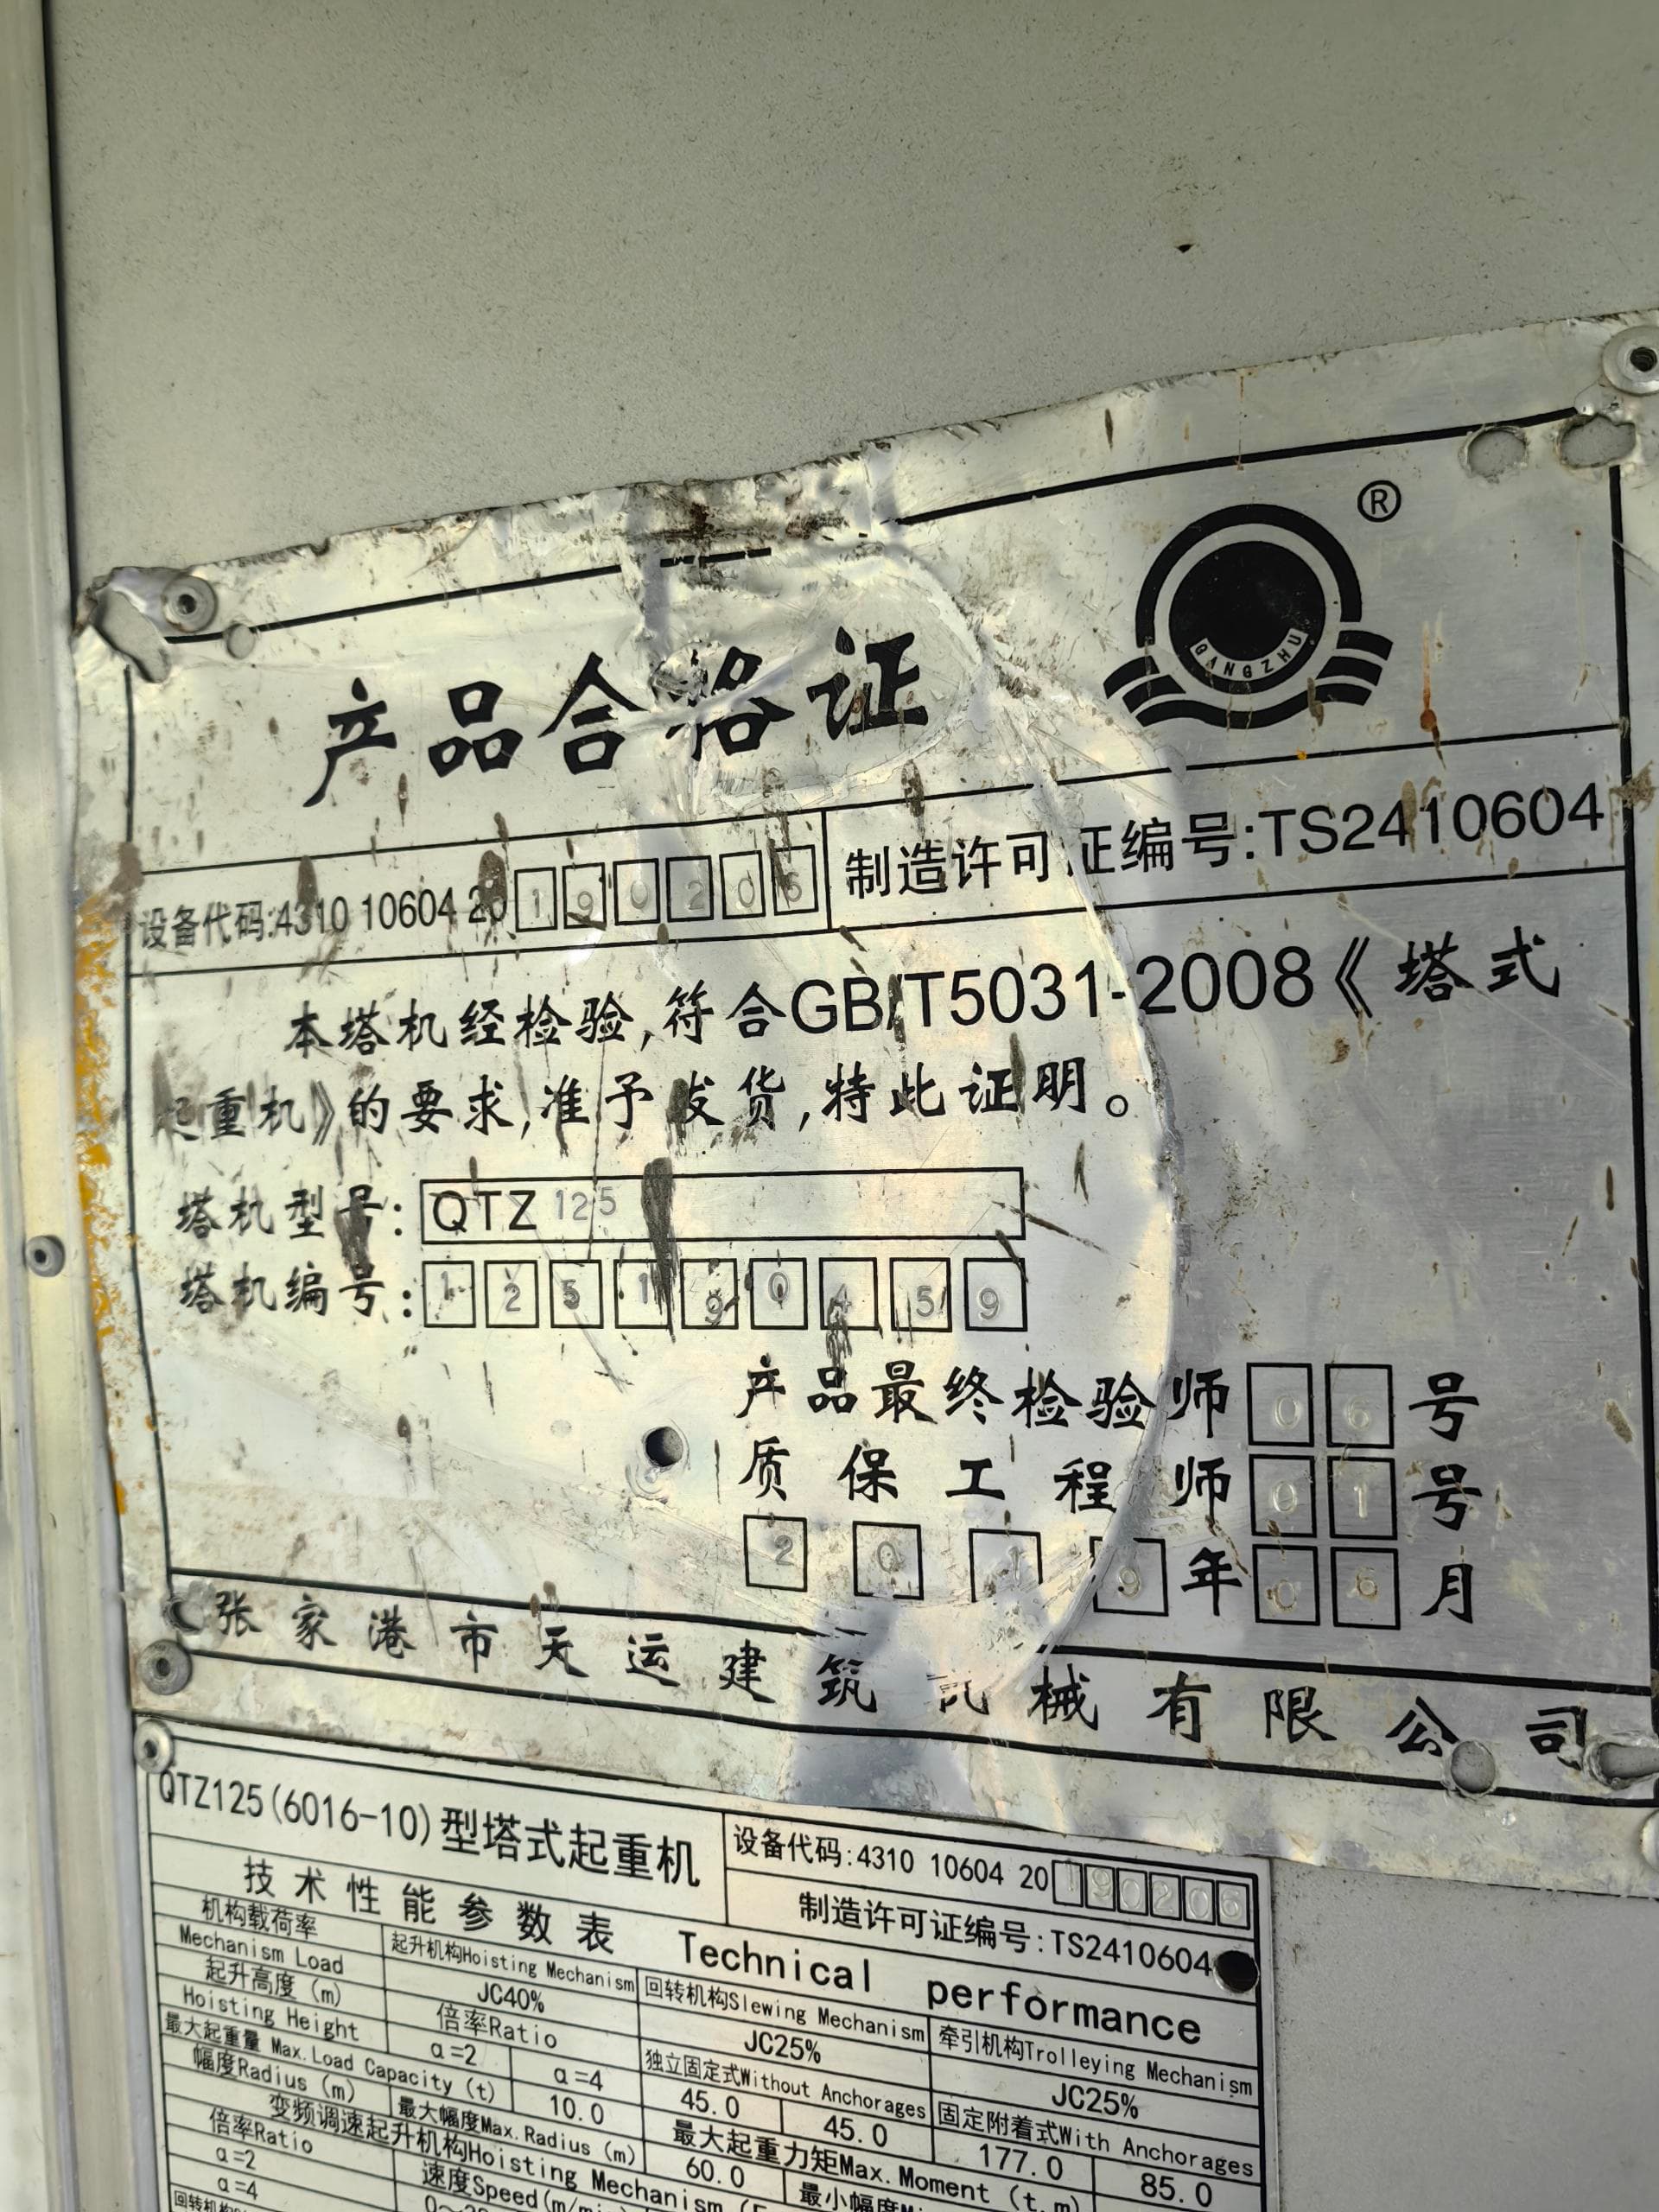 ®
GANGZHU
产品合格证
设备代码:4310 10604 20190206
制造许可证编号:TS2410604
本塔机经检验,符合GB/T5031-2008《塔式
起重机》的要求,准予发货,特此证明。
塔机型号: QTZ 125
塔机编号: 125190459
产品最终检验师 06 号
质保工程师 01 号
2019年06月
张家港市天运建筑机械有限公司
QTZ125(6016-10)型塔式起重机
设备代码:4310 10604 20190206
制造许可证编号:TS2410604
技术性能参数表 Technical performance
机构载荷率
Mechanism Load
起升机构Hoisting Mechanism
JC40%
回转机构Slewing Mechanism
JC25%
牵引机构Trolleying Mechanism
JC25%
起升高度 (m)
Hoisting Height
倍率Ratio
独立固定式Without Anchorages
固定附着式With Anchorages
α=2
45.0
177.0
α=4
45.0
85.0
最大起重量 Max.Load Capacity (t)
10.0
最大起重力矩Max.Moment (t.m)
幅度Radius (m)
最大幅度Max.Radius (m)
60.0
最小幅度
变频调速起升机构Hoisting Mechanism
倍率Ratio
速度Speed(m/min)
α=2
α=4